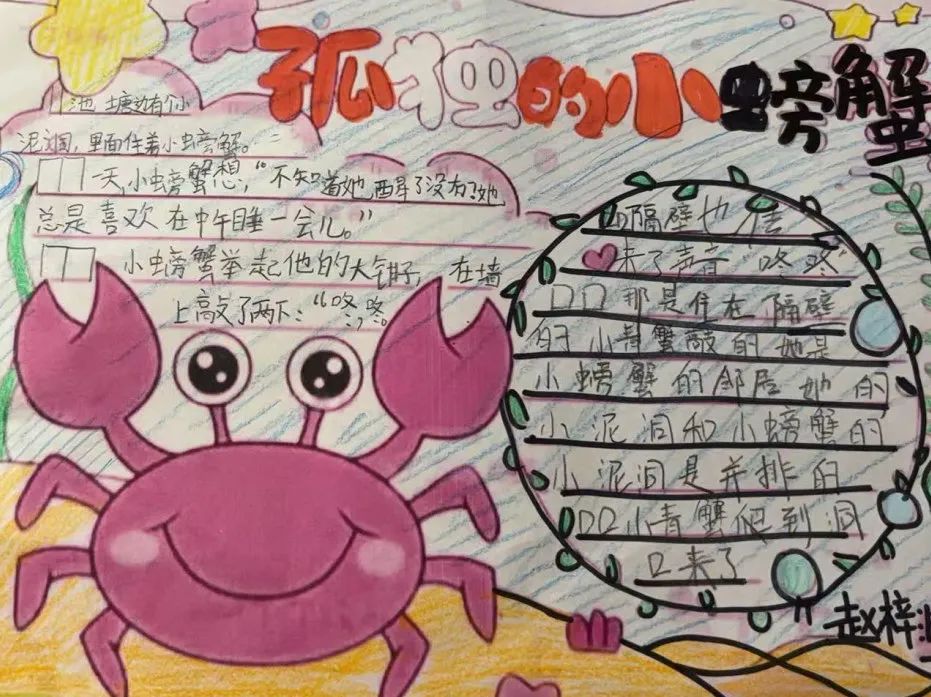 孤独的小螃蟹
池塘边有个小
泥洞,里面住着小螃蟹。
一天,小螃蟹想,“不知道她 醒了没有?她
总是喜欢在中午睡一会儿。”
小螃蟹举起他的大钳子,在墙
上敲了两下:“咚,咚。
隔壁也传
来了声音“咚咚”
那是住在隔壁
的小青蟹敲的她是
小螃蟹的邻居她的
小泥洞和小螃蟹的
小泥洞是并排的
小青蟹爬到洞
口来了
赵梓